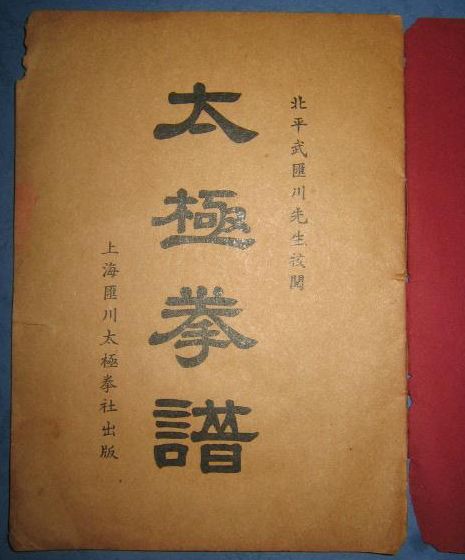 北平武匯川先生校閱
太極拳譜
上海匯川太極拳社出版